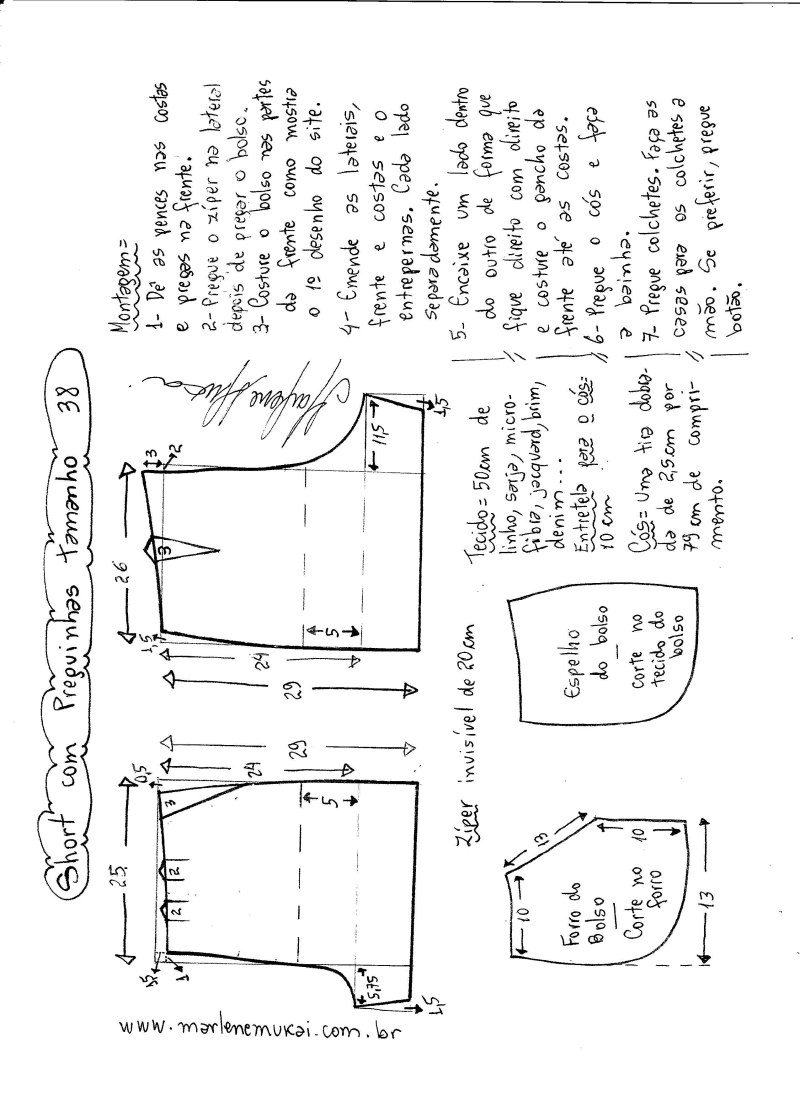 Short com Preguinhas Tamanho 38
www.marlenemukai.com.br
25
1,5
1
0,5
2
2
3
29
24
5
5,75
1,5
26
1,5
3
2
3
24
29
5
11,5
1,5
Montagem=
1- Dê as pences nas costas
e pregas na frente.
2- Pregue o zíper na lateral
depois de pregar o bolso.
3- Costure o bolso nas partes
da frente como mostra
o 1º desenho do site.
4- Emende as laterais,
frente e costas e o
entrepernas. Cada lado
separadamente.
5- Encaixe um lado dentro
do outro de forma que
fique direito com direito
e costure o gancho da
frente até as costas.
6- Pregue o cós e faça
a bainha.
7- Pregue colchetes. Faça as
casas para os colchetes a
mão. Se preferir, pregue
botão.
Zíper invisível de 20cm
Tecido= 50cm de
linho, sarja, micro-
fibra, jacquard, brim,
denim...
Entretela para o cós=
10 cm
Cós= Uma tira dobra-
da de 2,5cm por
79 cm de compri-
mento.
10
13
10
13
Forro do
Bolso
Corte no
forro
Espelho
do bolso
corte no
tecido do
bolso